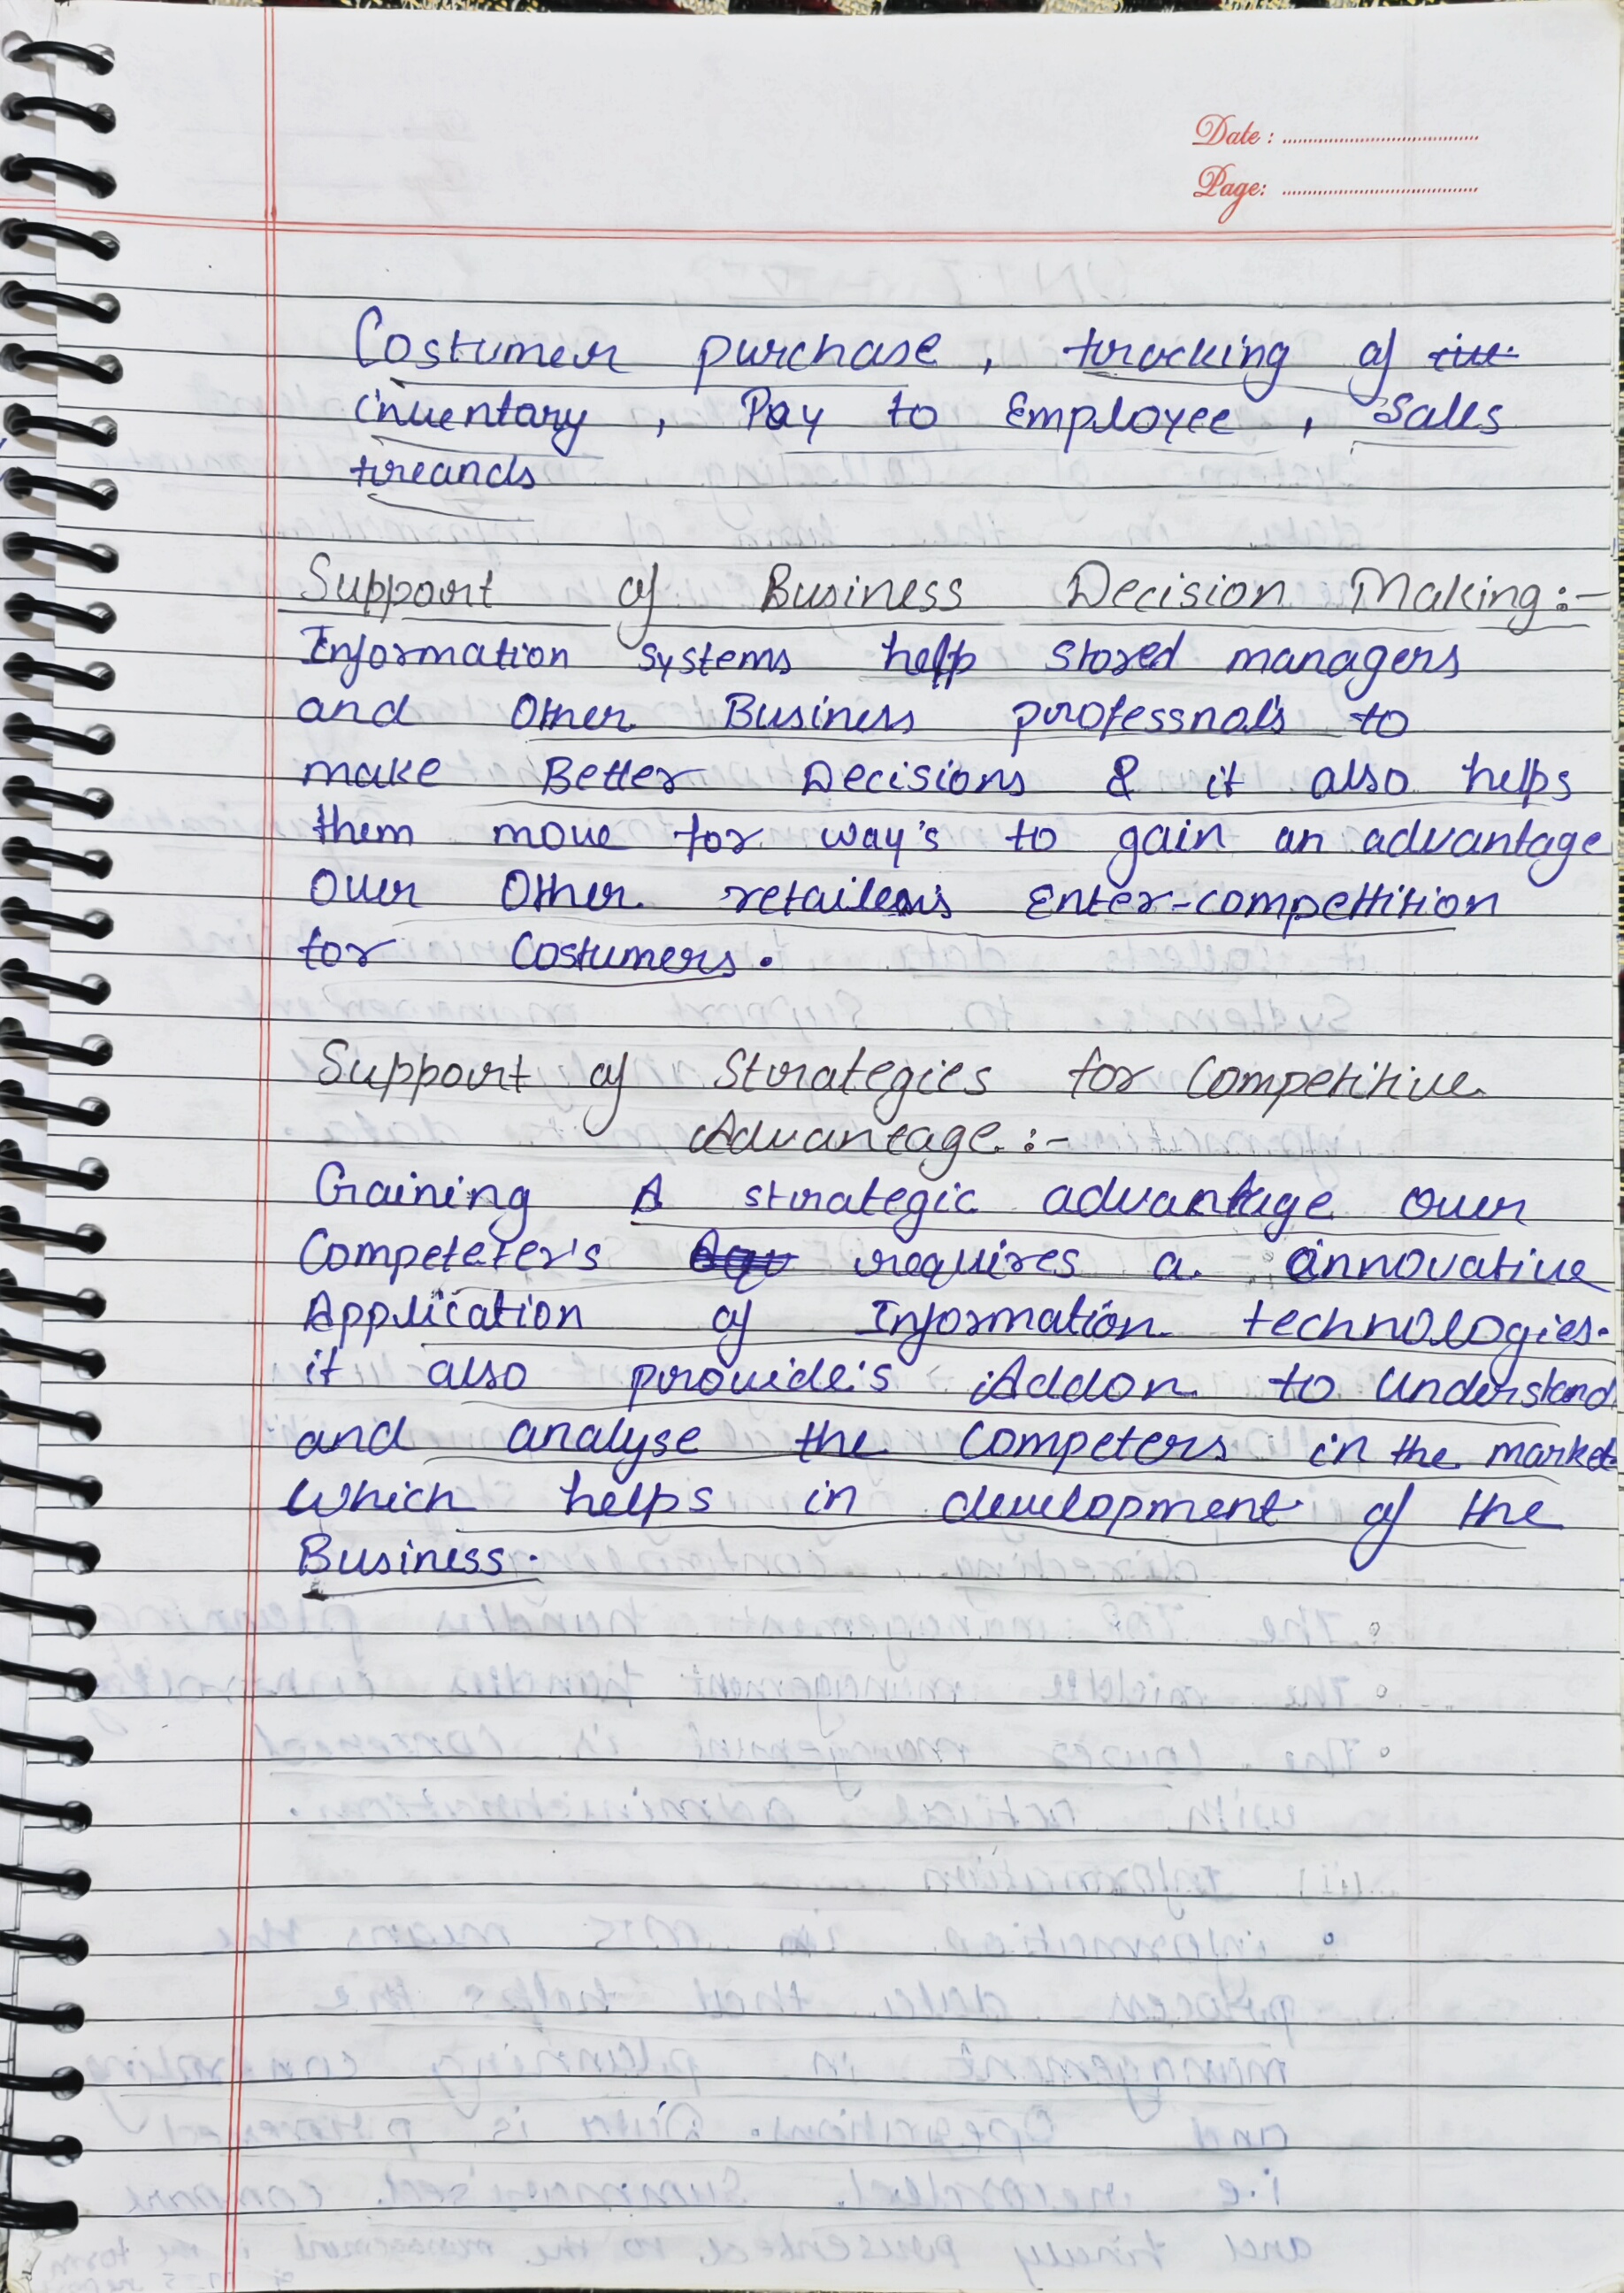 Date :
Page:
Costumer purchase , tracking of
inventary , Pay to Employee , Sales
treands
Support of Business Decision Making:-
Information systems help stored managers
and Other Business professnal's to
make Better Decisions & it also helps
them move for way's to gain an advantage
over Other retailer's Enter-compettition
for Costumers.
Support of Strategies for Competitive
Advantage :-
Gaining A strategic advantage over
Competeter's requires a innovative
Application of Information technologies.
it also provide's Addon to Understand
and analyse the Competers in the market
which helps in development of the
Business.